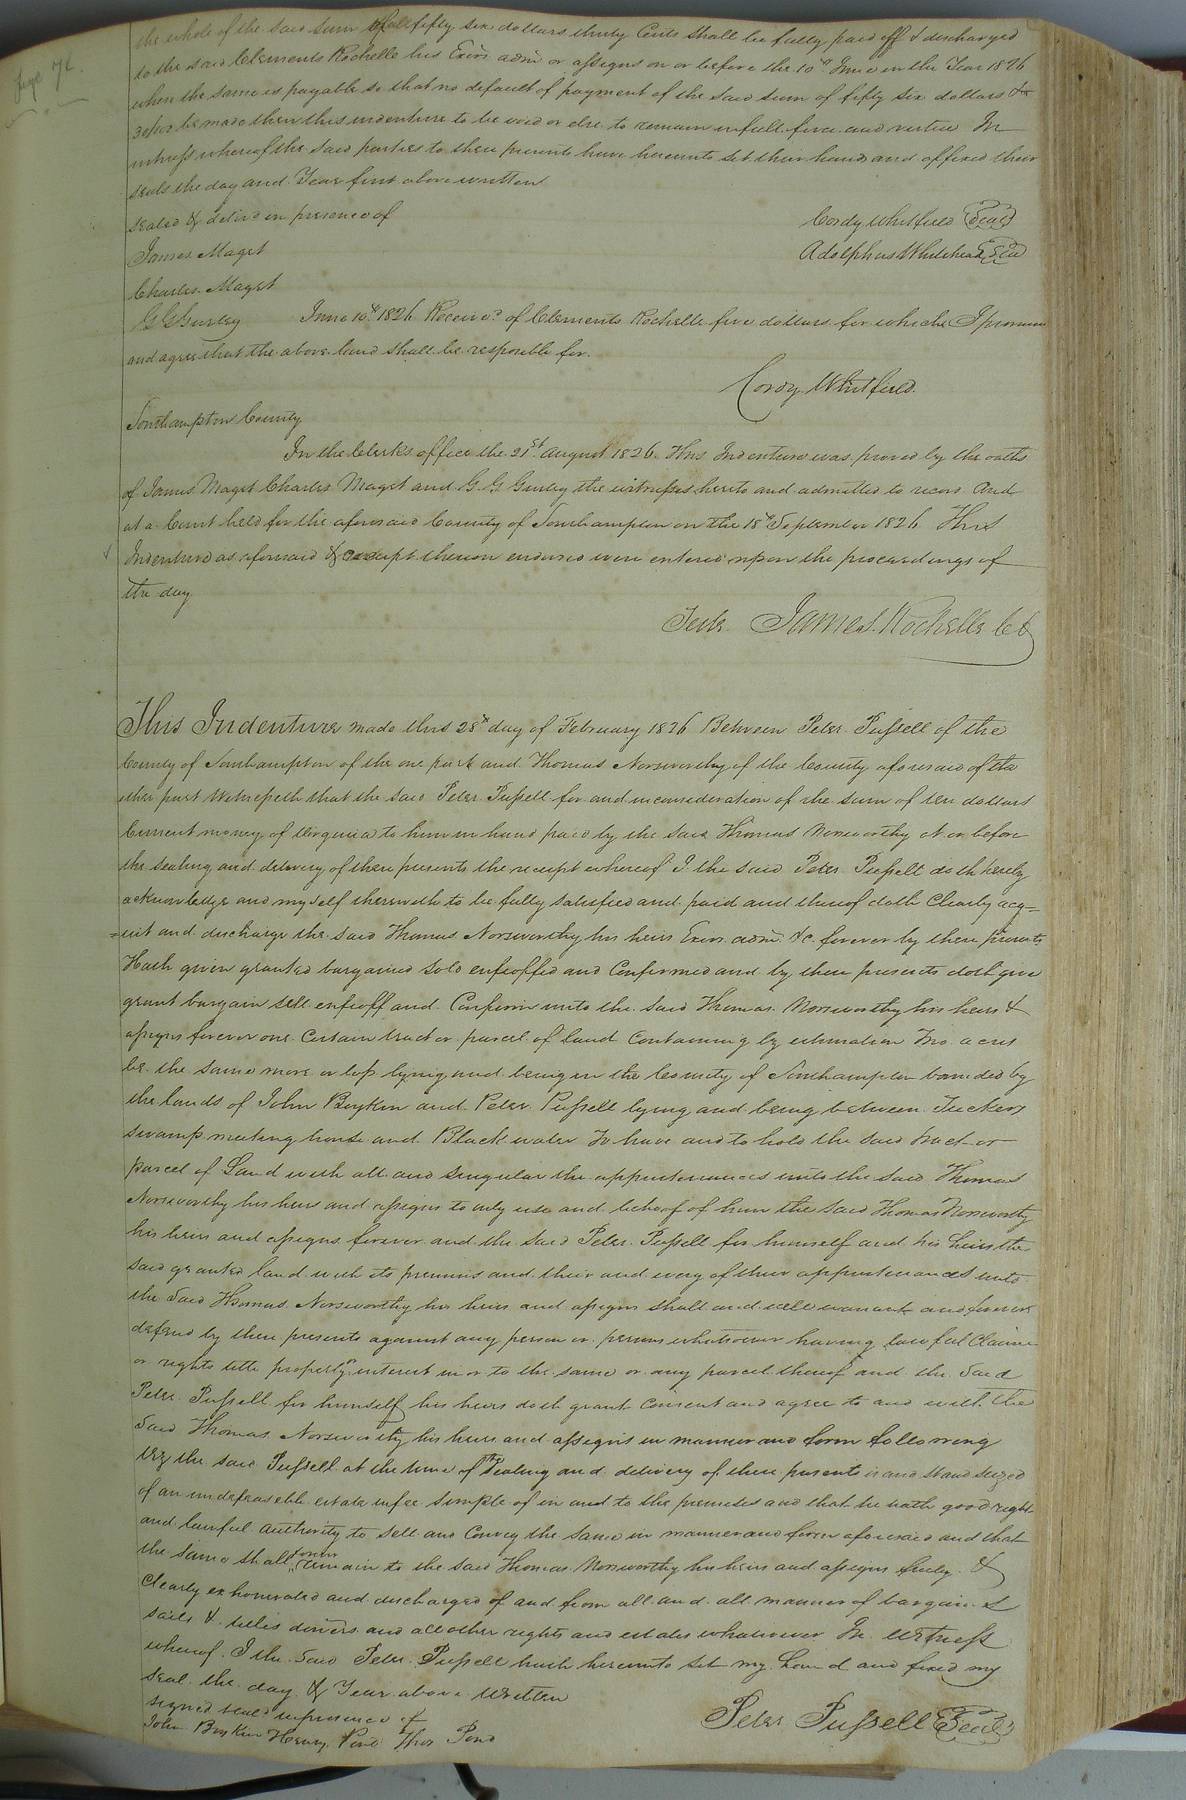 Page 72.
the whole of the said sum of fifty six dollars thirty Cents shall be fully paid off & discharged
to the said Clements Rochelle his Exors admr or assigns on or before the 10th June in the Year 1826
when the same is payable so that no default of payment of the said sum of fifty six dollars &
be made then this indenture to be void or else to remain in full force and vertue In
witness whereof the said parties to these presents have hereunto set their hands and affixed their
seals the day and Year first above written
sealed & delivd in presence of Cordy Whitfield Seal
James Maget Adolphus Whitehead Seal
Charles Maget
G G Gurley June 10th 1826 Receivd of Clements Rochelle five dollars for which I promise
and agree that the above land shall be resposible for.
Cordy Whitfield.
Southampton County
In the Clerks office the 21st August 1826. This Indenture was proved by the oaths
of James Maget Charles Maget and G. G. Gurley the witnesses hereto and admitted to record And
at a Court held for the aforesaid County of Southampton on the 18th September 1826 This
Indenture as aforesaid & receipt thereon endorsed were entered upon the proceedings of
the day
Teste James. Rochelle CC
This Indenture made this 28th day of February 1826 Between Peter Pussell of the
County of Southampton of the one part and Thomas Norsworthy of the County aforesaid of the
other part Witnesseth that the said Peter Pussell for and in consideration of the sum of ten dollars
Current money of Virginia to him in hand paid by the said Thomas Norsworthy at or before
the sealing and delivery of these presents the receipt whereof I the said Peter Pussell doth hereby
acknowledge and myself therewith to be fully satisfied and paid and thereof doth Clearly acq=
=uit and discharge the said Thomas Norsworthy his heirs Exors. admr. &c. forever by these presents
Hath given granted bargained sold enfeoffed and Confirmed and by these presents doth give
grant bargain sell enfeoff and Confirm unto the said Thomas Norsworthy his heirs &
assigns forever one Certain tract or parcel of land Containing by estimation Two acres
be the same more or less lying and being in the County of Southampton bounded by
the lands of John Boykin and Peter Pussell lying and being between Tuckers
swamp meeting house and Black water To have and to hold the said tract or
parcel of Land with all and singular the appurtenances unto the said Thomas
Norsworthy his heirs and assigns to only use and behoof of him the said Thomas Norsworthy
his heirs and assigns forever and the said Peter Pussell for himself and his heirs the
said granted land with its premises and their and every of their appurtenances unto
the said Thomas Norsworthy his heirs and assigns shall and will warrant and forever
defend by these presents against any person or persons whatsoever having lawful Claim
or rights title property or interest in or to the same or any parcel thereof and the said
Peter Pussell for himself his heirs doth grant Consent and agree to and with the
said Thomas Norsworthy his heirs and assigns in manner and form following
viz the said Pussell at the time of the sealing and delivery of these presents is and stand seized
of an undefeaseble estate infee simple of in and to the premises and that he hath good right
and lawful authority to sell and Convey the same in manner and form aforesaid and that
the same shall remain to the said Thomas Norsworthy his heirs and assigns freely &
Clearly exhonerated and discharged of and from all and all manner of bargain &
sails & titles dowers and all other rights and estates whatsoever In witness
whereof I the said Peter Pussell hath hereunto set my hand and fixed my
seal the day & Year above written
signed seald in presence of Peter Pussell Seal
John Boykin Henry Pond Thos Pond